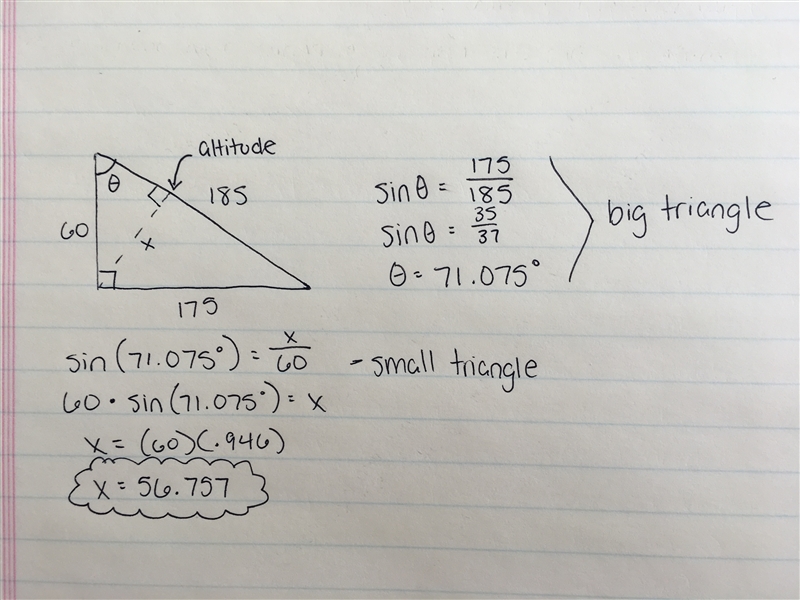 altitude
θ
185
60
x
175
sinθ = 175/185
sinθ = 35/37
θ = 71.075°
big triangle
sin(71.075°) = x/60 - small triangle
60 · sin(71.075°) = x
x = (60)(.946)
x = 56.757